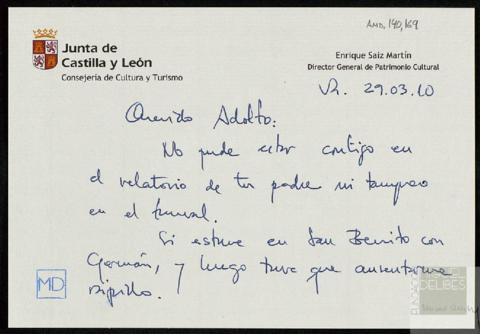 AMD, 140, 169
Junta de
Castilla y León
Consejería de Cultura y Turismo
Enrique Saiz Martín
Director General de Patrimonio Cultural
Va. 29.03.10
Querido Adolfo:
No pude estar contigo en
el velatorio de tu padre ni tampoco
en el funeral.
Si estuve en San Benito con
Germán, y luego tuve que ausentarme
rápido.
MD
FUNDACIÓN
MIGUEL
DELIBES